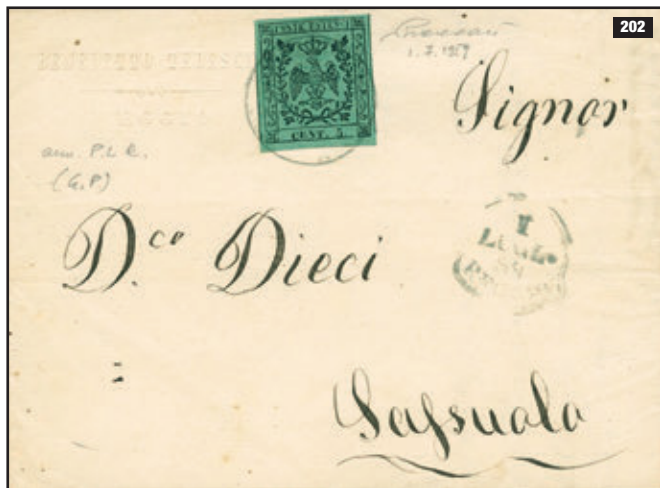 202
POSTE ESTENSI
CENT. 5
1.7.1859
Signor
ann. P.L.R.
(G.P)
D.co Dieci
1
LUGL.
59
Sassuolo